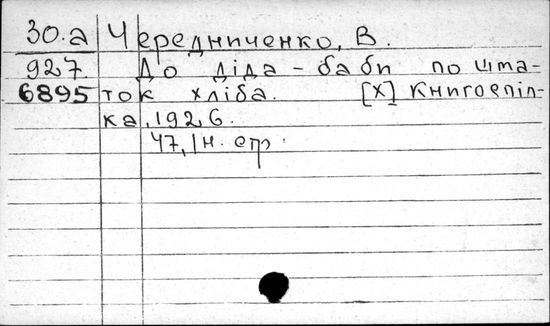 30.а Чередниченко, В.
927. До діда-баби по шма-
6895 ток хліба. [Х] Книгоспіл-
ка, 1926.
47, 1 н. стр.